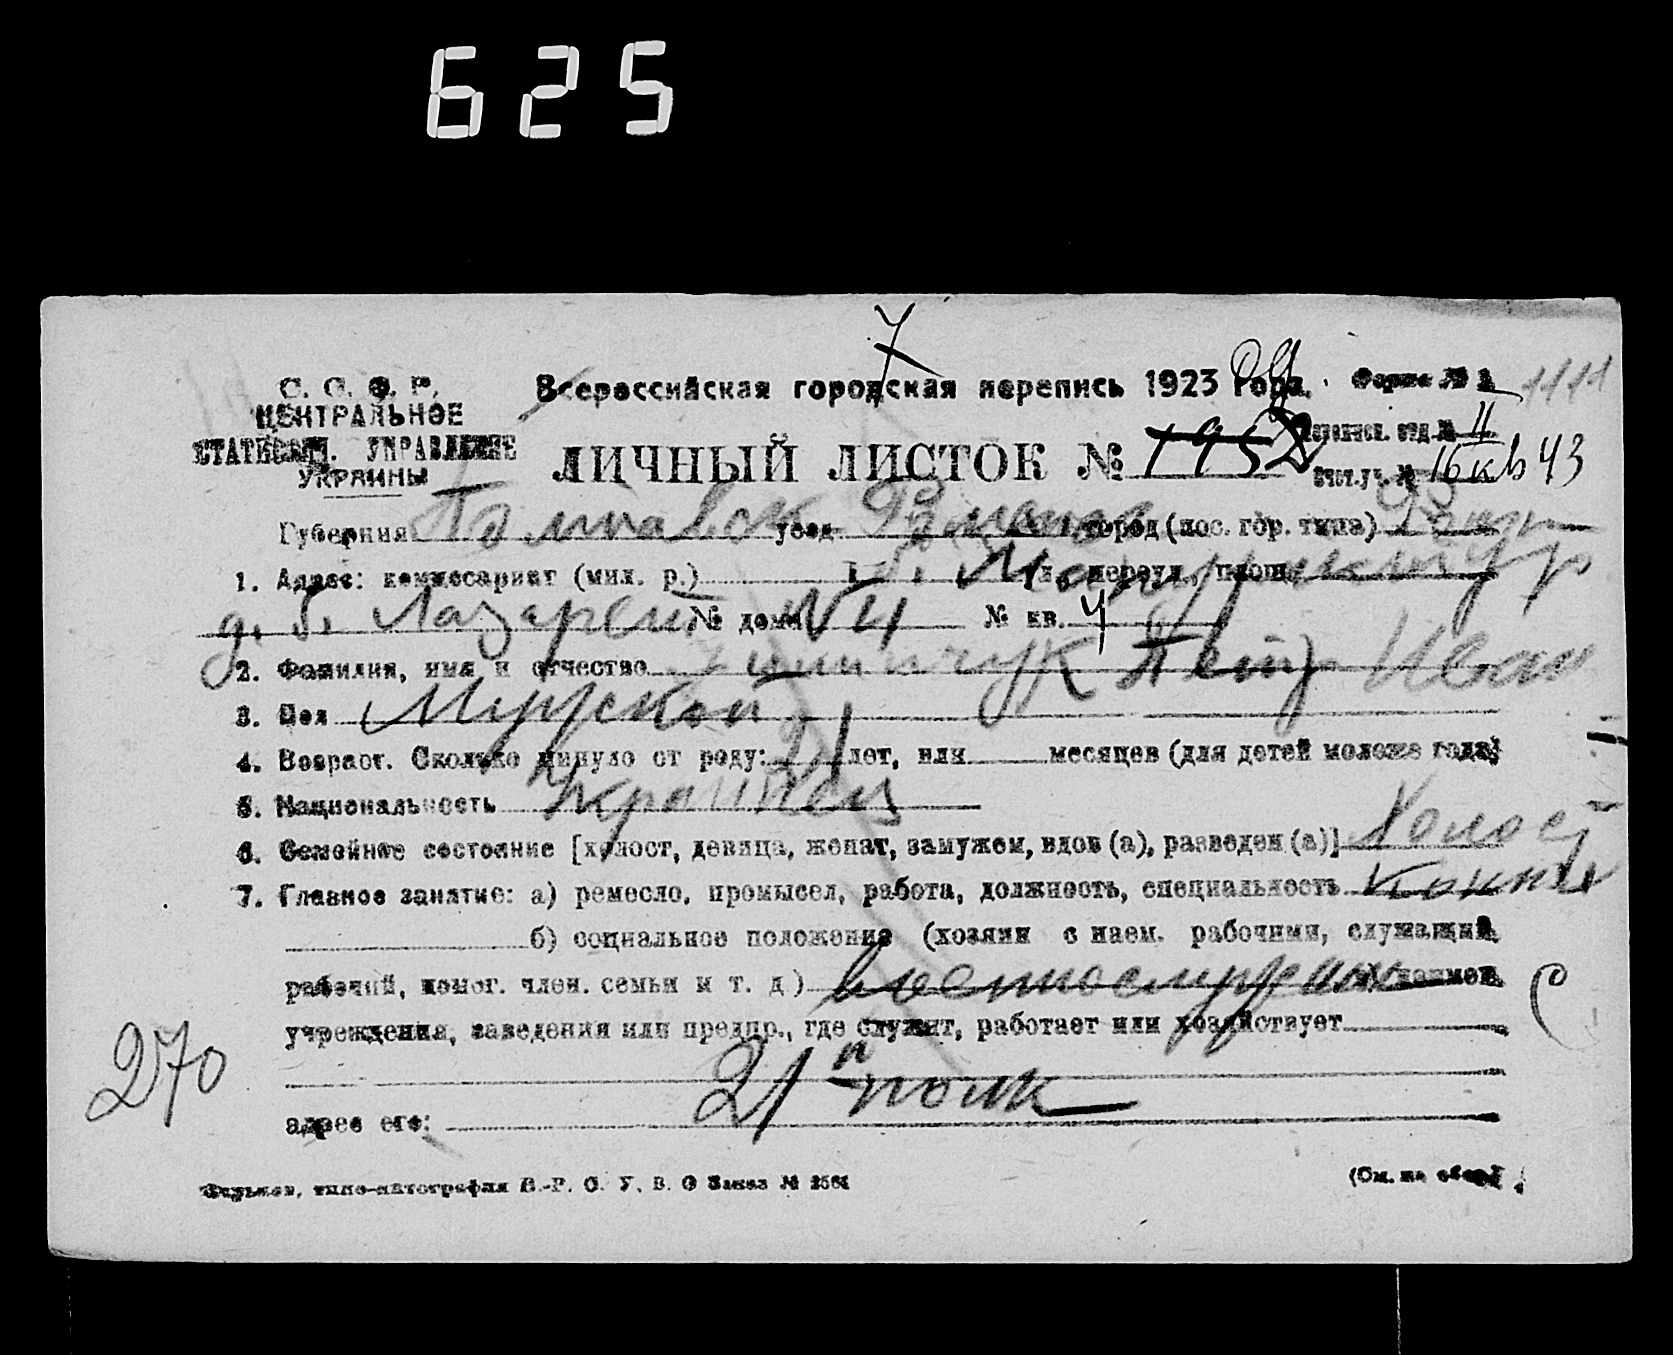 625
7
С. С. Ф. Р.
ЦЕНТРАЛЬНОЕ
СТАТИСТИЧ. УПРАВЛЕНИЕ
УКРАИНЫ
Всероссийская городская перепись 1923 года.
Форма № 1
1111
ЛИЧНЫЙ ЛИСТОК № 195
Переписн. отд. № 11
Счет. уч. № 16 кв 43
Губерния Полтавск уезд город (пос. гор. типа)
1. Адрес: комиссариат (мил. р.) 1 ул., переул., площ.
д. б. Лазарент № дома № 4 № кв. 4
2. Фамилия, имя и отчество Петр Иван
3. Пол Мужской
4. Возраст. Сколько минуло от роду: 21 лет, или месяцев (для детей моложе года)
5. Национальность Украинец
6. Семейное состояние [холост, девица, женат, замужем, вдов (а), разведен (а)] Холост
7. Главное занятие: а) ремесло, промысел, работа, должность, специальность
б) социальное положение (хозяин с наем. рабочими, служащий,
рабочий, помог. член. семьи и т. д.) военнослужащий наимен.
учреждения, заведения или предпр., где служит, работает или хозяйствует
21 й полк
270
адрес его:
Харьков, типо-литография В.-Р. С. У. В. О Заказ № 2561
(См. на обор.)